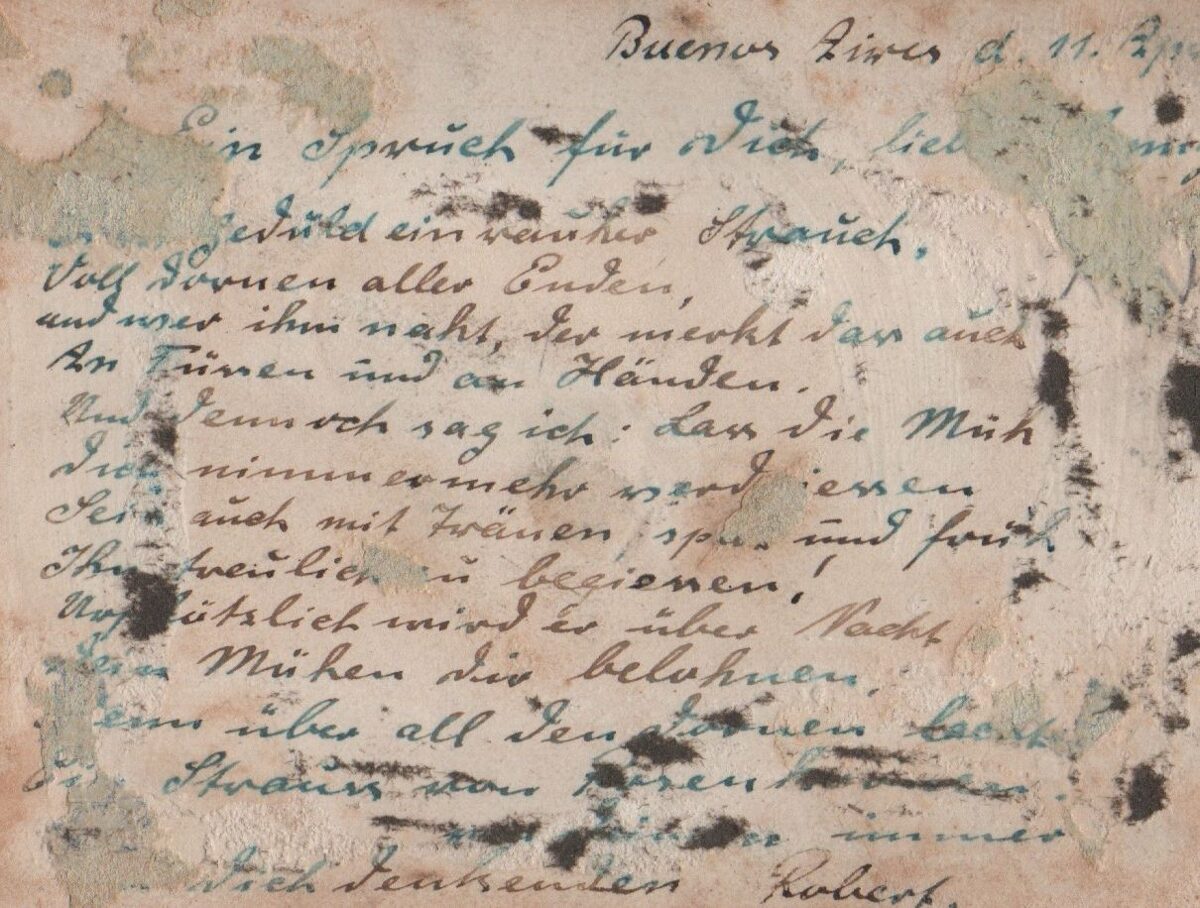 Buenos Aires d. 11. Ap
Ein Spruch für Dich,
Geduld ein rauher Strauch,
Voll Dornen aller Enden,
und wer ihm naht, der merkt das auch
An Füssen und an Händen.
Und dennoch sag ich: Lass die Müh
Dich nimmermehr verdriessen
Seis auch mit Tränen, spät und früh
Ihn treulich zu begiessen!
Urplötzlich wird er über Nacht
dein Mühen dir belohnen,
denn über all den Dornen lacht
Ein Strauss von Rosenkronen.
immer
Dich denkenden Robert.